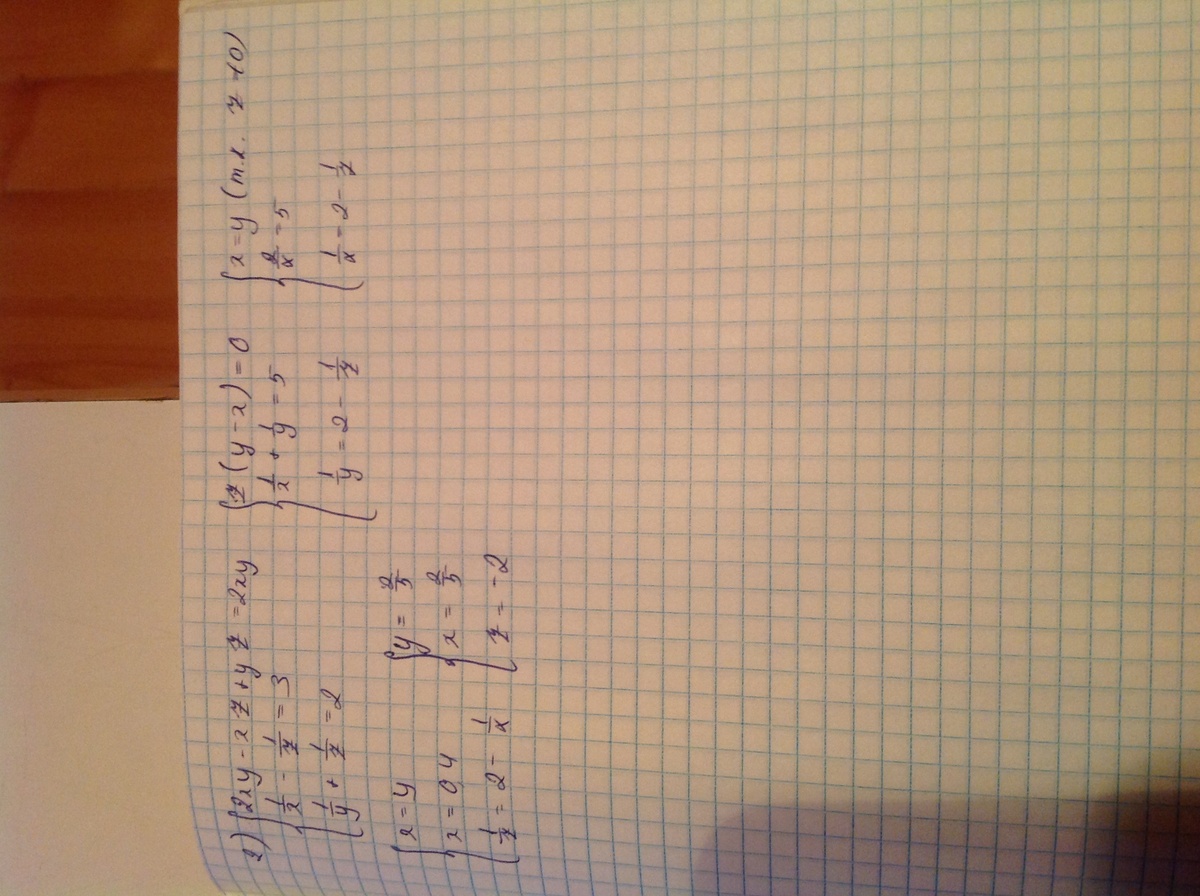 2) { 2xy - xz + yz = 2xy
1/x - 1/z = 3
1/y + 1/z = 2
{ z(y - x) = 0
1/x + 1/y = 5
1/y = 2 - 1/z
{ x = y (т.к. z ≠ 0)
2/x = 5
1/x = 2 - 1/z
{ x = y
x = 0,4
1/z = 2 - 1/x
{ y = 2/5
x = 2/5
z = -2